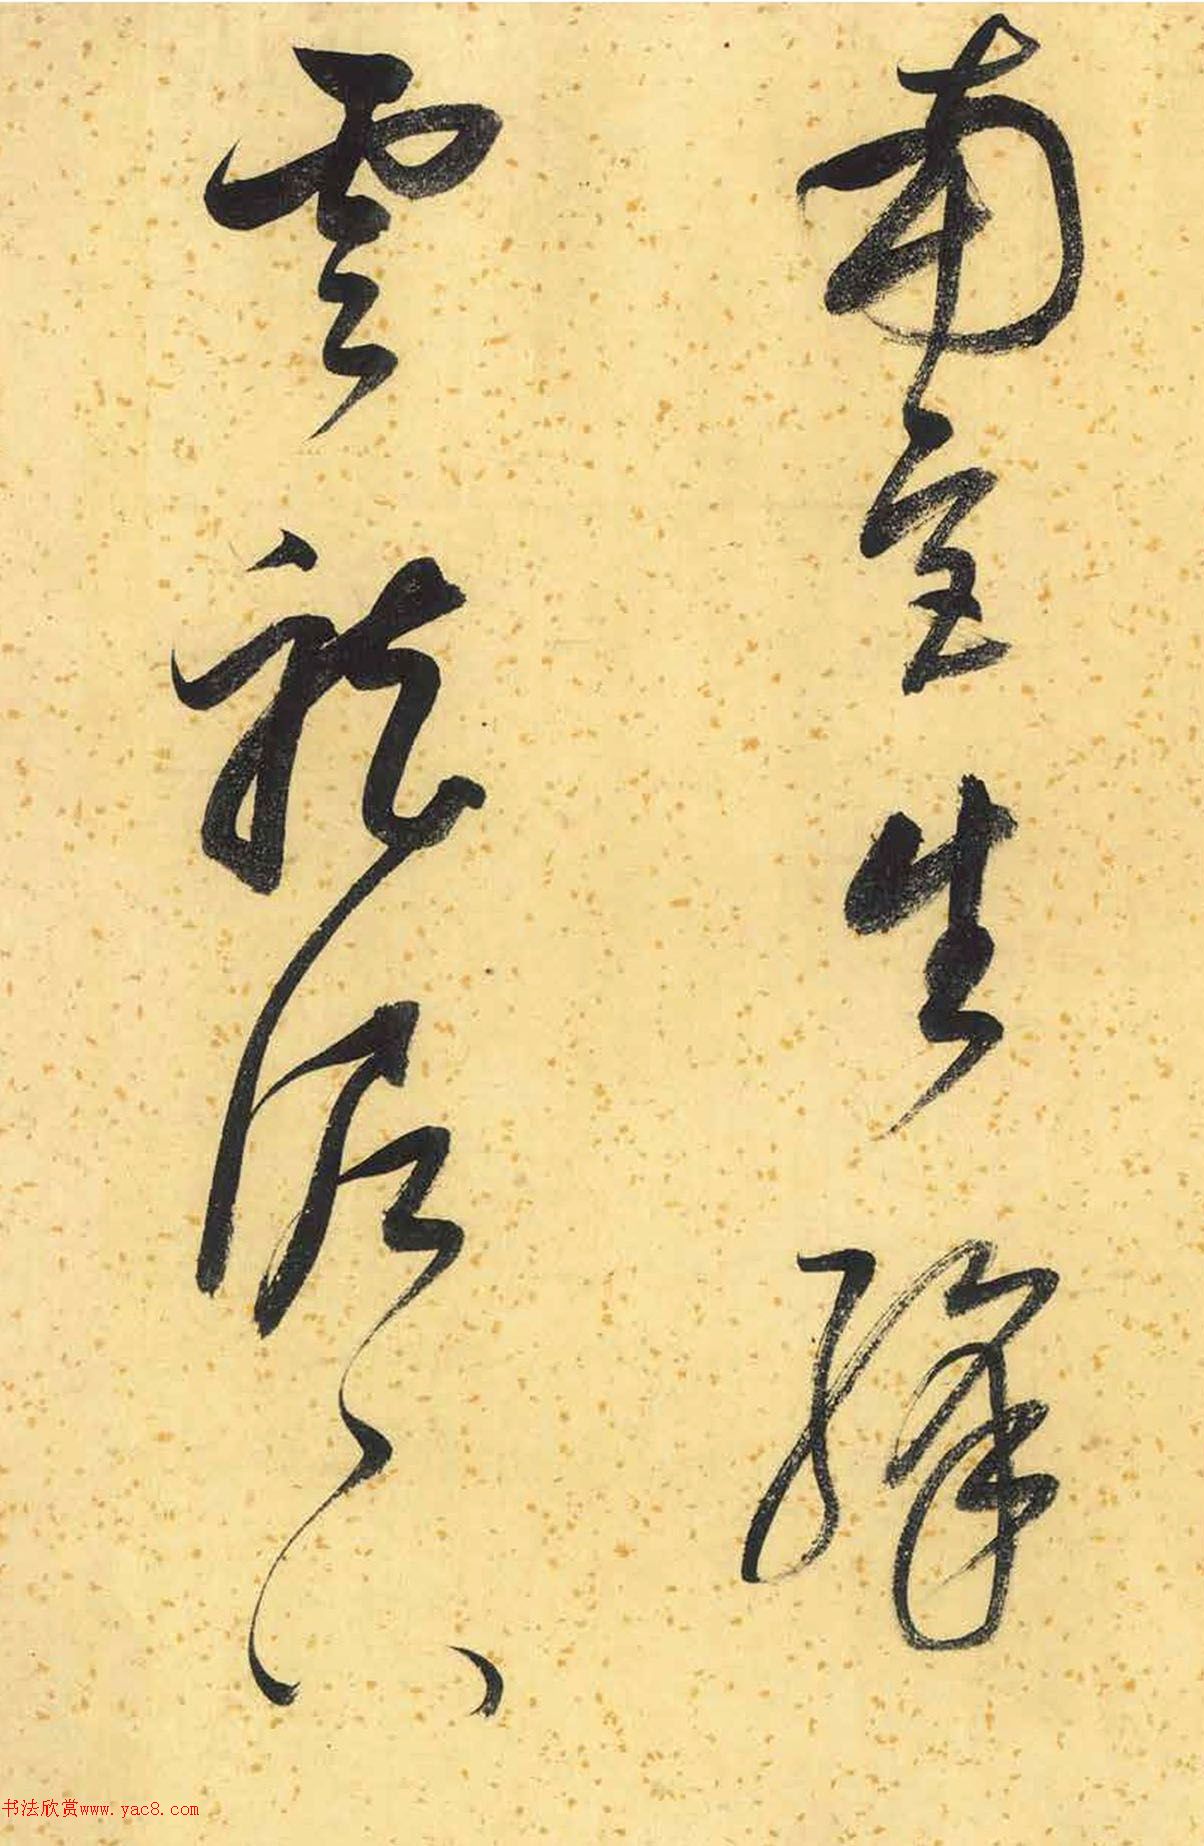 南宫生绛
雲龍泥六
书法欣赏www.yac8.com